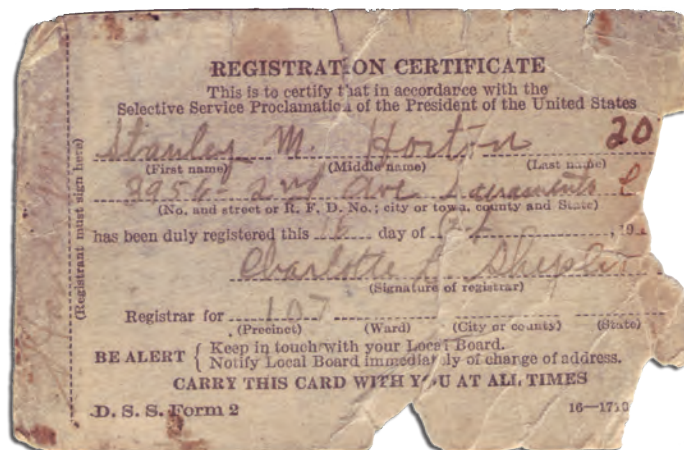 REGISTRATION CERTIFICATE
This is to certify that in accordance with the
Selective Service Proclamation of the President of the United States
Stanley M. Horton 20
(First name) (Middle name) (Last name)
2nd Ave Sacramento
(No. and street or R. F. D. No.; city or town, county and State)
has been duly registered this 16 day of , 19
Charlotte
(Signature of registrar)
Registrar for 107
(Precinct) (Ward) (City or county) (State)
BE ALERT { Keep in touch with your Local Board.
Notify Local Board immediately of change of address.
CARRY THIS CARD WITH YOU AT ALL TIMES
D. S. S. Form 2 16—17
(Registrant must sign here)